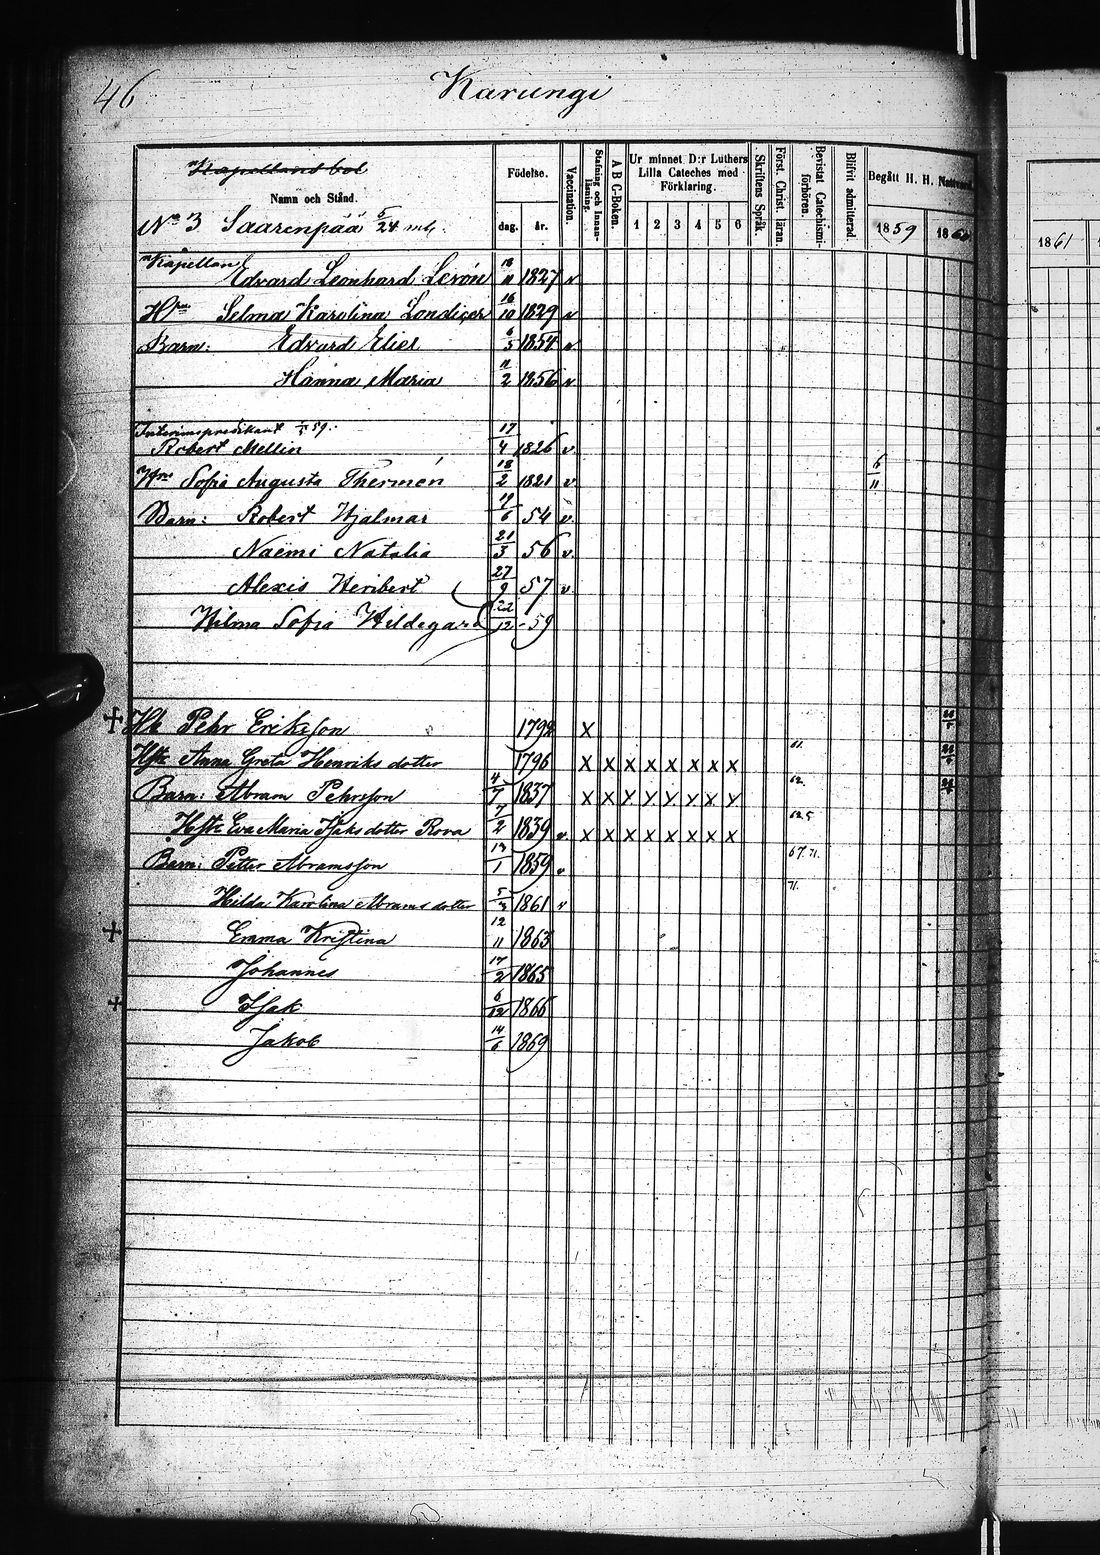 46
Karungi
Kapellans bol
Namn och Stånd.
No 3 Saarenpää 5/24 mtl
Födelse.
dag. år.
Vaccination.
Stafning och Innanläsning.
A B C-Boken.
Ur minnet D:r Luthers Lilla Cateches med Förklaring.
1 2 3 4 5 6
Skriftens Språk.
Först. Christ. läran.
Bevistat Catechismiförhören.
Blifvit admitterad
Begått H. H. Nattvard.
1859 1860
1861
Kapellan
Edvard Leonhard Levón 18/11 1827 v
Hm Selma Karolina Londicer 16/10 1829 v
Barn: Edvard Elier 6/5 1854 v
Hanna Maria 11/2 1856 v
Interimspredikant 59
Robert Mellin 17/4 1826 v
Hm Sofia Augusta Thermén 18/2 1821 v 6/11
Barn: Robert Hjalmar 19/6 54 v
Naëmi Natalia 21/3 56 v
Alexis Heribert 27/9 57 v
Hilma Sofia Hildegard 22/12 -59
Hb Pehr Eriksson 1792 X
Hst Anna Greta Henriksdotter 1796 X X X X X X X X 61.
Barn: Abram Pehrsson 4/7 1837 X X X X X X X X 62.
Hst Eva Maria Isaksdotter Rova 7/2 1839 v X X X X X X X X
Barn: Petter Abramsson 13/1 1859 v 67. 71.
Hilda Karolina Abramsdotter 5/3 1861 v 71.
Emma Kristina 12/11 1863
Johannes 17/2 1865
Isak 6/12 1866
Jakob 14/6 1869